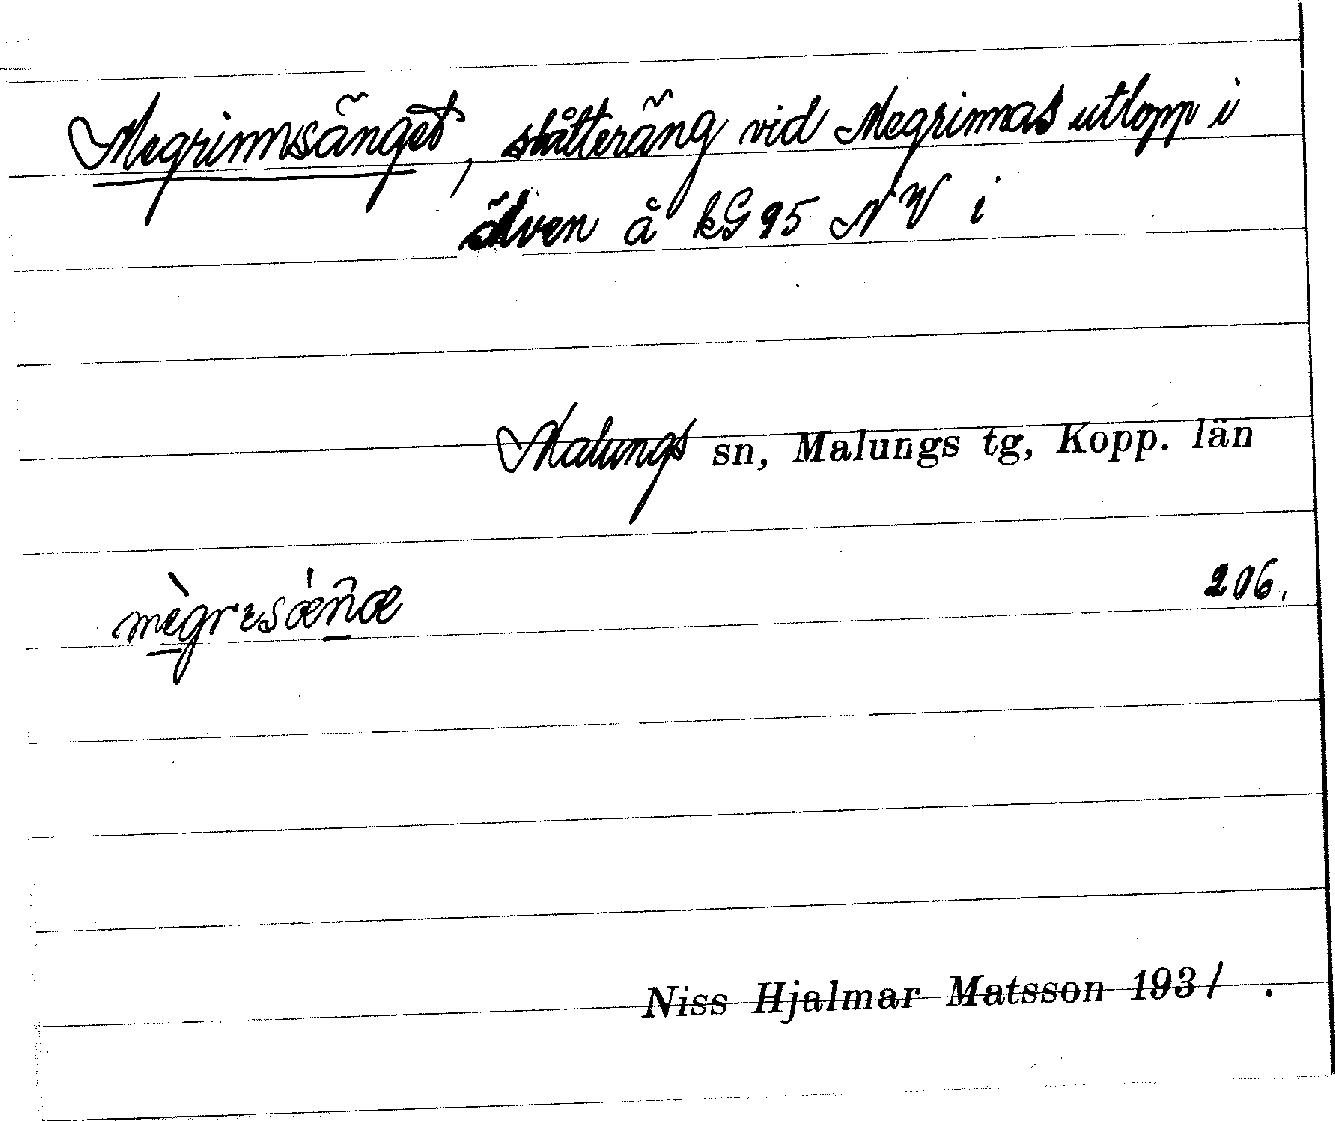 Megrimsänget, slåtteräng vid Megrinnas utlopp i
älven å kG 95 N V i
Malungs sn, Malungs tg, Kopp. län
206.
Niss Hjalmar Matsson 1931 .